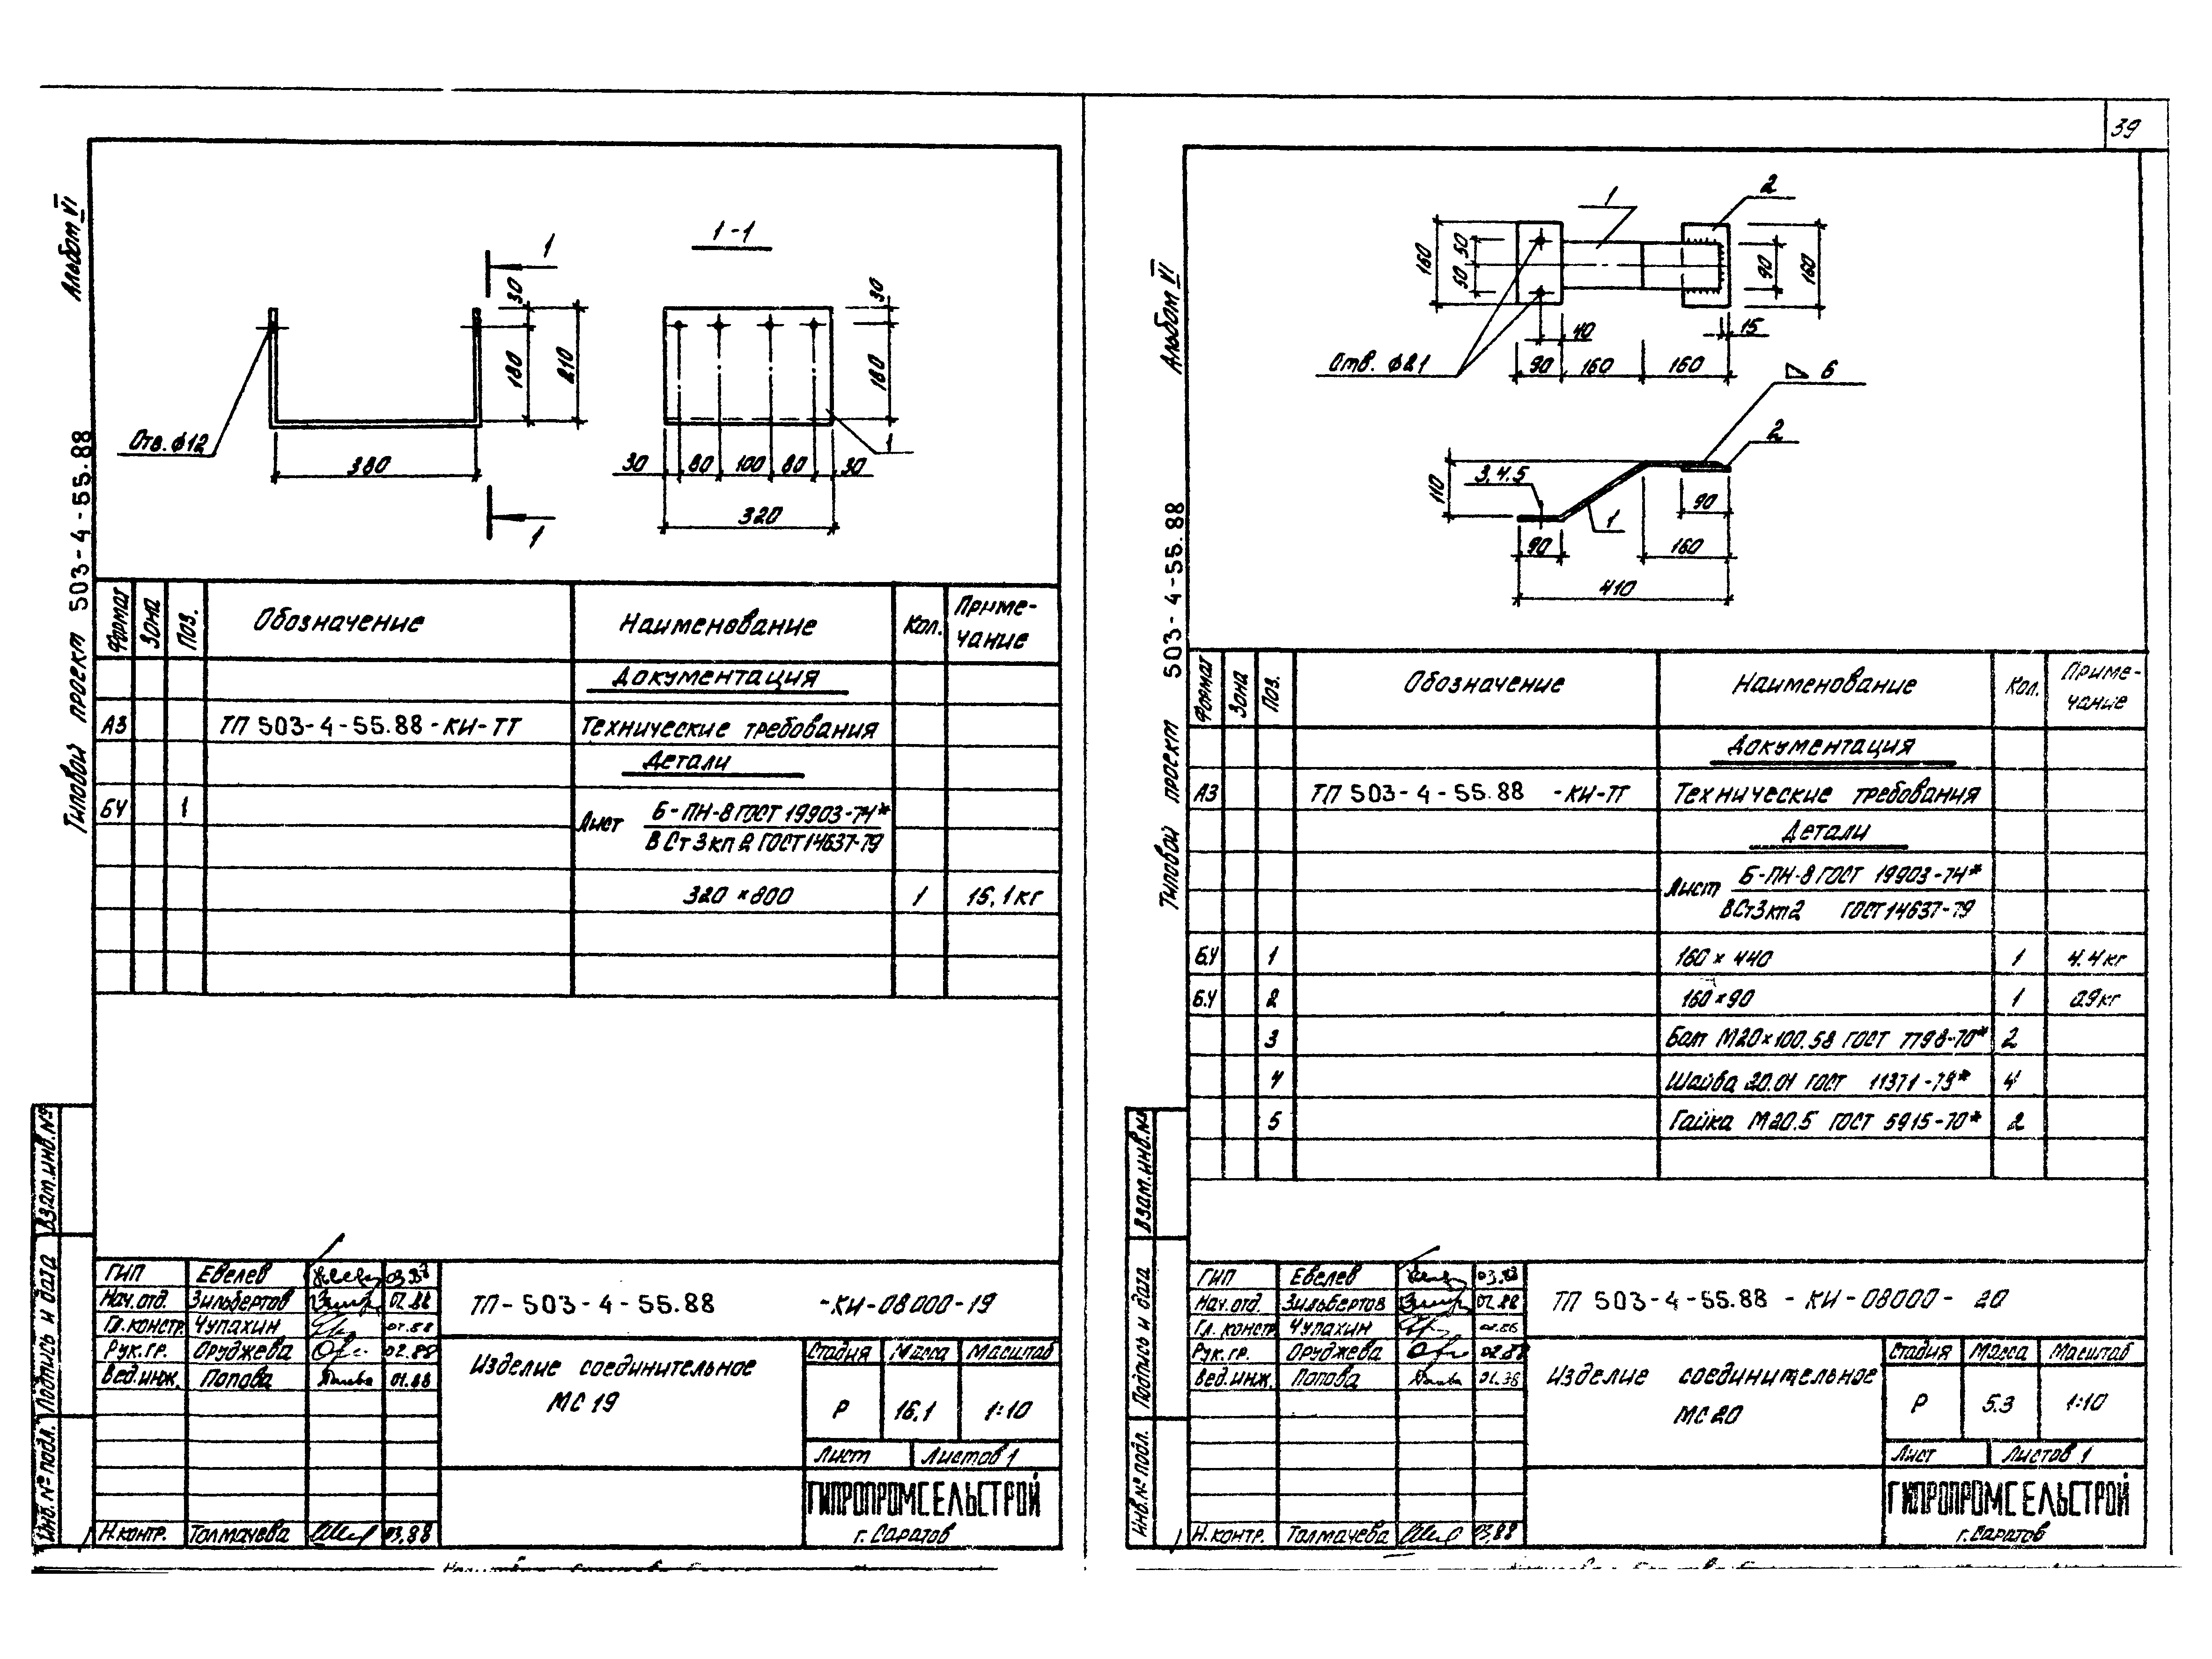 39
Альбом VI
Типовой проект 503-4-55.88
1
1-1
30
180
210
Отв. ϕ12
380
1
30
180
1
30 80 100 80 30
320
Формат Зона Поз. Обозначение Наименование Кол. Приме-
чание
Документация
А3 ТП 503-4-55.88-КИ-ТТ Технические требования
Детали
БЧ 1 Лист Б-ПН-8 ГОСТ 19903-74*
ВСт3кп2 ГОСТ 14637-79
320×800 1 15,1кг
Взам.инв.№
Подпись и дата
Инв.№ подл.
ГИП Евелев 03.88
Нач.отд. Зильбертов 02.88
Гл.констр. Чупахин 02.88
Рук.гр. Оруджева 02.88
Вед.инж. Попова 01.88
Н.контр. Толмачева 03.88
ТП-503-4-55.88 -КИ-08000-19
Изделие соединительное
МС 19
Стадия Масса Масштаб
Р 16,1 1:10
Лист Листов 1
ГИПРОПРОМСЕЛЬСТРОЙ
г. Саратов
Альбом VI
Типовой проект 503-4-55.88
1
2
160
50
50
90
160
40
15
Отв. ϕ21
90 160 160
6
2
3,4,5
110
1
90
90
160
410
Формат Зона Поз. Обозначение Наименование Кол. Приме-
чание
Документация
А3 ТП 503-4-55.88 -КИ-ТТ Технические требования
Детали
Лист Б-ПН-8 ГОСТ 19903-74*
ВСт3кп2 ГОСТ 14637-79
БЧ 1 160×440 1 4.4кг
БЧ 2 160×90 1 0.9кг
3 Болт М20×100.58 ГОСТ 7798-70* 2
4 Шайба 20.01 ГОСТ 11371-78* 4
5 Гайка М20.5 ГОСТ 5915-70* 2
Взам.инв.№
Подпись и дата
Инв.№ подл.
ГИП Евелев 03.88
Нач.отд. Зильбертов 02.88
Гл. констр. Чупахин 02.88
Рук.гр. Оруджева 02.88
Вед.инж. Попова 01.88
Н.контр. Толмачева 03.88
ТП 503-4-55.88 -КИ-08000- 20
Изделие соединительное
МС 20
Стадия Масса Масштаб
Р 5.3 1:10
Лист Листов 1
ГИПРОПРОМСЕЛЬСТРОЙ
г. Саратов